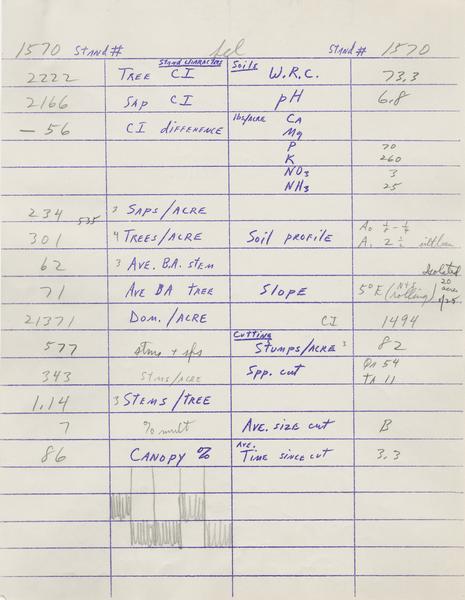 1570 Stand # fel Stand # 1570
Stand characters Soils
2222 Tree CI W.R.C. 73.3
2166 Sap CI pH 6.8
- 56 CI difference lbs/acre Ca
Mg
P 70
K 260
NO3 3
NH3 25
234 535 3 Saps/acre
301 4 Trees/acre Soil profile A0 ½ - ¼
A1 2 ½
62 3 Ave. B.A. stem Isolated
71 Ave BA tree Slope 5° E (N+S rolling) 20 acres
21371 Dom./acre CI 1494
Cutting
577 stms + sps Stumps/acre 3 82
343 Stms/acre Spp. cut Qa 54
Ta 11
1.14 3 Stems/tree
7 % mult Ave. size cut B
86 Canopy % Ave. Time since cut 3.3